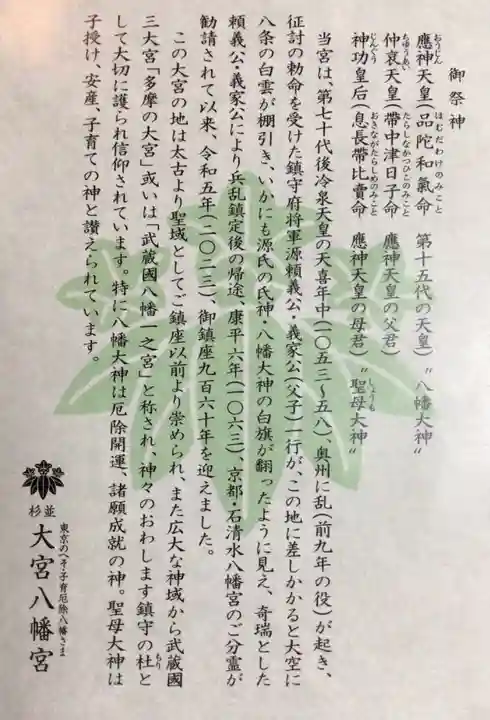 御祭神
應神天皇(品陀和氣命 第十五代の天皇)〝八幡大神〟
おうじん ほむだわけのみこと
仲哀天皇(帶中津日子命 應神天皇の父君)
ちゅうあい たらしなかつひこのみこと
神功皇后(息長帶比賣命 應神天皇の母君)〝聖母大神〟
じんぐう おきながたらしひめのみこと しょうも
当宮は、第七十代後冷泉天皇の天喜年中(一〇五三〜五八)、奥州に乱(前九年の役)が起き、
征討の勅命を受けた鎮守府将軍源頼義公・義家公(父子)一行が、この地に差しかかると大空に
八条の白雲が棚引き、いかにも源氏の氏神・八幡大神の白旗が翻ったように見え、奇瑞とした
頼義公・義家公により兵乱鎮定後の帰途、康平六年(一〇六三)、京都・石清水八幡宮のご分霊が
勧請されて以来、令和五年(二〇二三)、御鎮座九百六十年を迎えました。
この大宮の地は太古より聖域としてご鎮座以前より崇められ、また広大な神域から武蔵國
三大宮「多摩の大宮」或いは「武蔵國八幡一之宮」と称され、神々のおわします鎮守の杜と
もり
して大切に護られ信仰されています。特に八幡大神は厄除開運、諸願成就の神。聖母大神は
子授け、安産、子育ての神と讃えられています。
東京のへそ・子育厄除八幡さま
杉並
大宮八幡宮